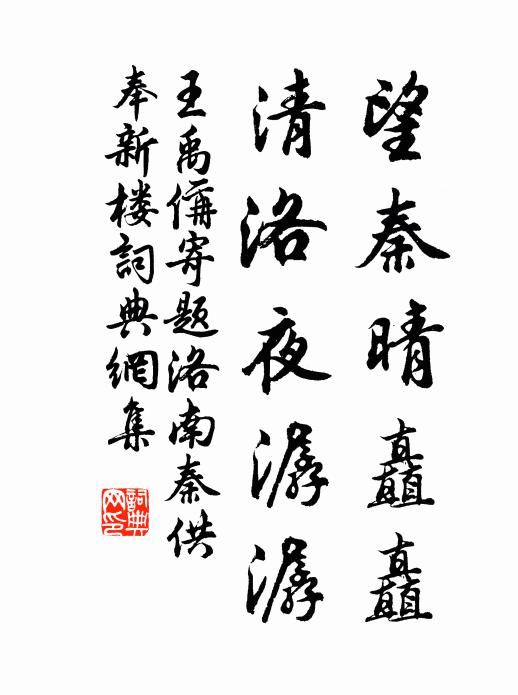 望秦晴矗矗
清洛夜潺潺
王禹偁寄题洛南秦供
奉新楼詞典網集
詞典网印